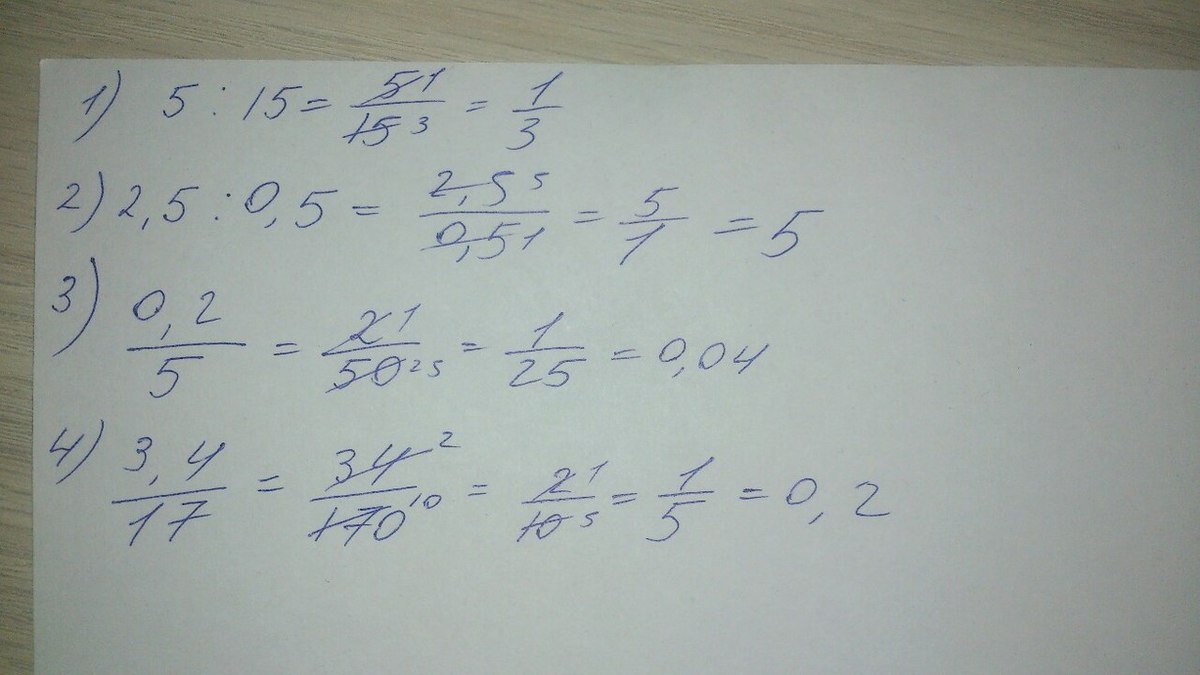 1) 5 : 15 = 5 1/15 3 = 1/3
2) 2,5 : 0,5 = 2,5 5/0,5 1 = 5/1 = 5
3) 0,2/5 = 2 1/50 25 = 1/25 = 0,04
4) 3,4/17 = 34 2/170 10 = 2 1/10 5 = 1/5 = 0,2